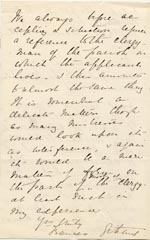 We always before ac
cepting a Scholar require
a reference to the clergy
man of the parish in
which the applicant
lives. & this amounts
to almost the same thing
It is somewhat a
delicate matter though
as many Mistresses
would look upon it
as interference, & again
it would be a mere
matter of form on
the part of the clergy
at least such is
my experience
Yrs truly
Frances